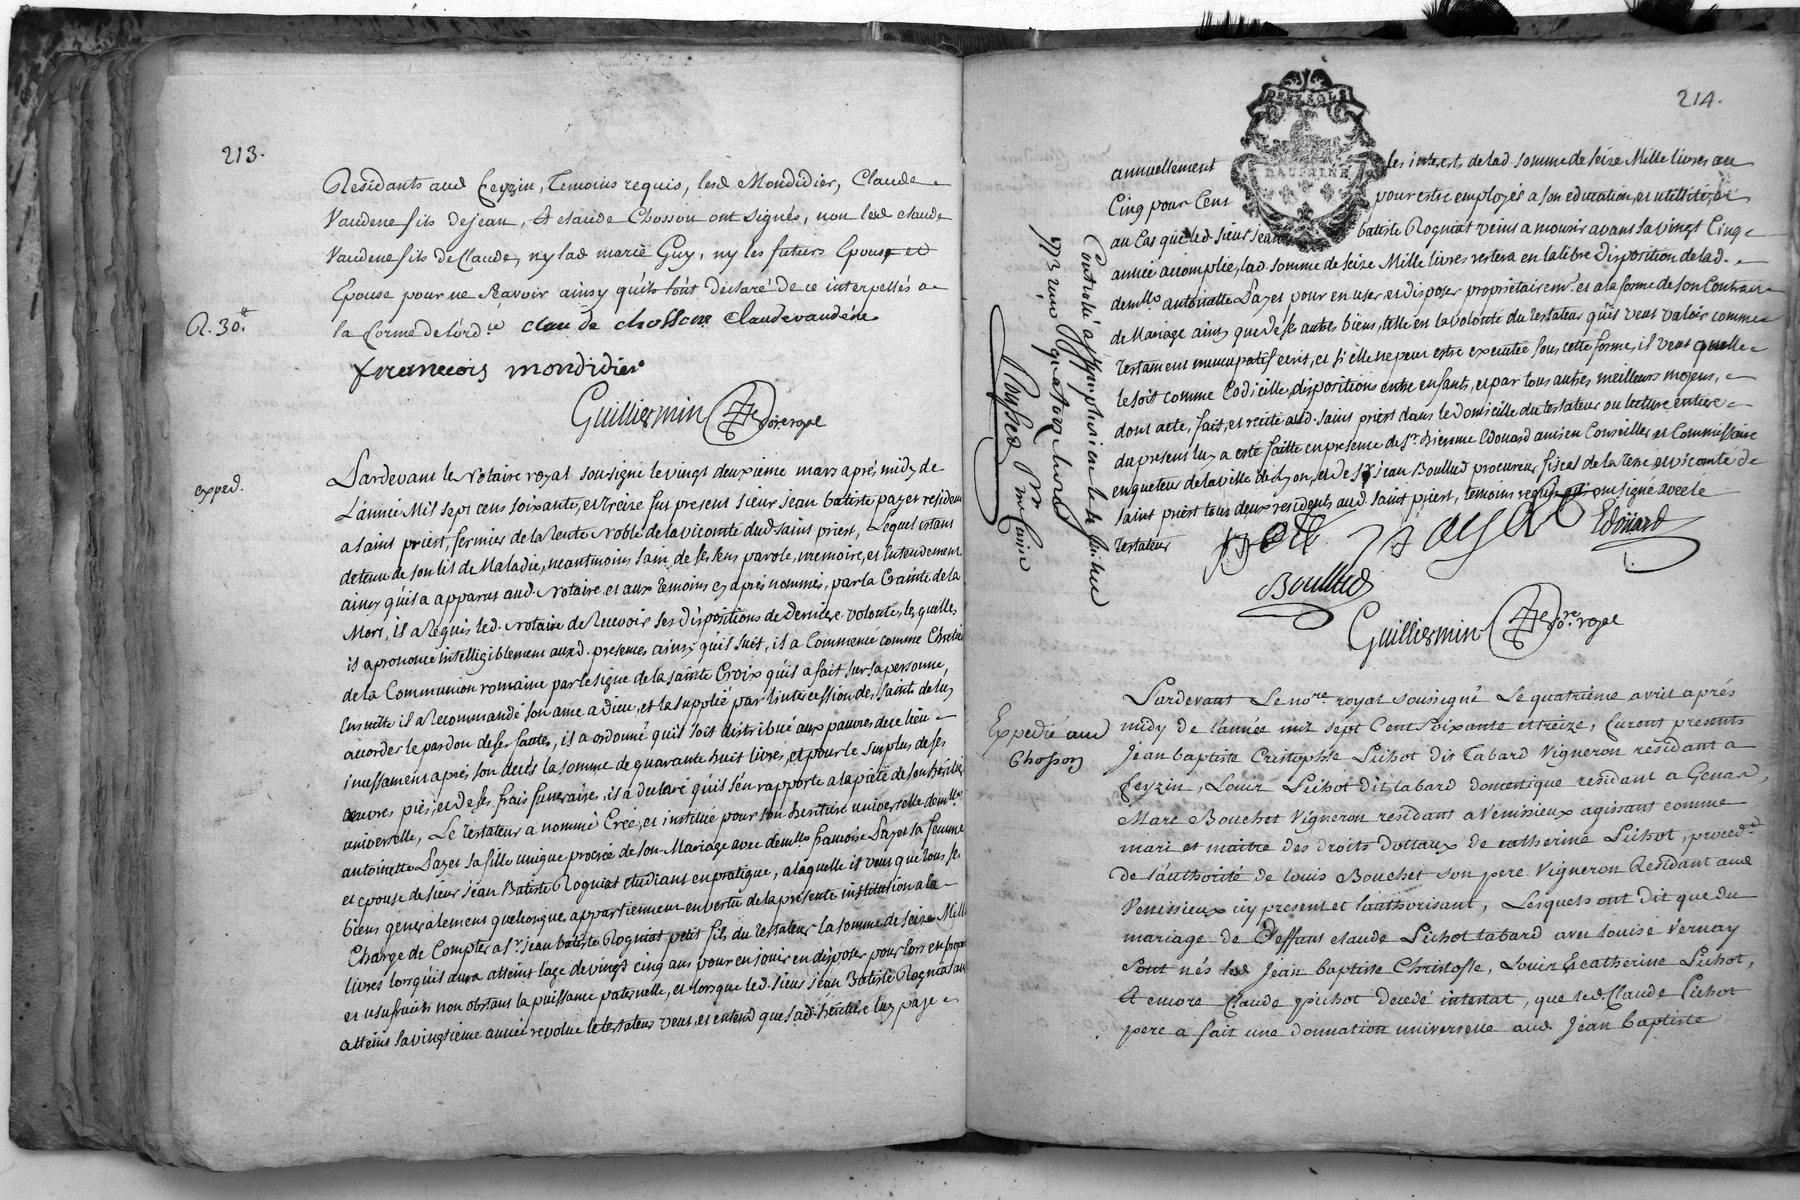 213.
Residants aud Feyzin, Temoins requis, lesd Mondidier, Claude
Vaudene fils de jean, Et claude Chosson ont signés, non led claude
Vaudene fils de Claude, ny lad marie Guy, ny les futurs Epoux et
Epouse pour ne Sçavoir ainsy quils l'ont déclaré de ce interpellés a
R. 30.tt
la forme de l'ord.ce clau de chosson Claude vaudene
francois mondidier
Guilliermin No.re royal
exped.
Pardevant le Notaire royal soussigné le vingt deuxieme mars aprés midy de
L'année Mil sept cens soixante, et treize fut present sieur jean batiste payet resident
a saint priest, fermier de la Rente Noble de la vicomté dud saint priest, Lequel estant
detenu de son lit de Maladie, neantmoins sain de ses sens parole, memoire, et Entendement
ainsy quil a apparus aud. Notaire et aux temoins cy aprés nommés, par la Crainte de la
Mort, il a Requis led. Notaire de Recevoir ses dispositions de derniere volonté, les quelles
il a prononcé intelligiblement auxd. presences ainsy quil suit, il a Commencé comme Chretien
de la Communion romaine par le signe de la sainte Croix quil a fait sur sa personne,
Ensuitte il a Recommandé son ame a Dieu, et la supplié par l'intercession des saints de luy
accorder le pardon de ses fautes, il a ordonné quil soit distribué aux pauvres de ce lieu
incessament aprés son decés la somme de quarante huit livres, et pour le surplus de ses
œuvres pies, et de ses frais funeraires, il a declaré quil s'en rapporte a la pieté de son heritiere
universelle, Le Testateur a nommé Créé, et institué pour son heritiere universelle dem.lle
antoinette Payet sa fille unique procréé de son Mariage avec dem.lle francoise Payet sa femme
et epouse de sieur jean Batiste Rogniat etudiant en pratique, a laquelle il veut que tous ses
biens generalement quelconques appartiennent en vertu de la presente institution a la
Charge de Compter a s.r jean batiste Rogniat petit fils du testateur la somme de seize Mille
livres lorsquil aura atteint l'age de vingt cinq ans pour en jouir en disposer pour lors en propre
et usufruits non obstant la puissance paternelle, et lorsque led. sieur jean Batiste Rogniat aura
atteint sa vingtieme année revolue le testateur veut, et entend que lad. heritiere luy paye
214.
DEUX SOLS
DAUPHINE
annuellement les interets de lad somme de seize Mille livres au
Cinq pour Cent pour estre employés a son education, et utillité, et
au Cas que led. sieur jean batiste Rogniat veint a mourir avant sa vingt Cinq
année accomplie, lad somme de seize Mille livres restera en la libre Disposition de lad.
dem.lle antoinette Payet pour en user et disposer propriétairem.t et a la forme de son Contract
de Mariage ainsy que de ses autres biens, telle en la volonté du testateur quil veut valoir comme
testament nuncupatif ecrit, et si elle ne peut estre executée sous cette forme, il veut quelle
le soit comme Codicille, dispositions entre enfants, et par tous autres meilleurs moyens,
dont acte, fait, et recité aud. saint priest dans le domicille du testateur ou lecture entiere
du present luy a esté faitte en presence de S.r Etienne Edouard ancien Conseiller et Commissaire
enqueteur de la ville de Lyon, et de S.r jean Boullud procureur fiscal de la Terre et vicomté de
saint priest tous deux residents aud saint priest, temoins requis qui ont signé avec le
testateur
payet Edoüard
Boullud
Guilliermin No.re royal
Controllé a st Simphorien le
1773 reçu quatorze livres
Expedié aud
Chosson
Pardevant Le no.re royal soussigné Le quatrieme avril aprés
midy de l'année mil sept Cent soixante et treize, furent presents
Jean baptiste Cristophle Pichot dit Tabard Vigneron residant a
feyzin, Louis Pichot dit tabard domestique residant a Genas,
Marc Bouchet Vigneron residant a Venissieux agissant comme
mari et maitre des droits dottaux de catherine Pichot, proced.t
de l'authorité de louis Bouchet son pere Vigneron Residant aud
Venissieux icy present et l'authorisant, Lesquels ont dit que du
mariage de Deffunt claude Pichot tabard avec louise Vernay
sont nés led Jean baptiste Christofle, Louis Et catherine Pichot,
Et encore Claude pichot decedé intestat, que led. Claude Pichot
pere a fait une donnation universelle aud Jean baptiste